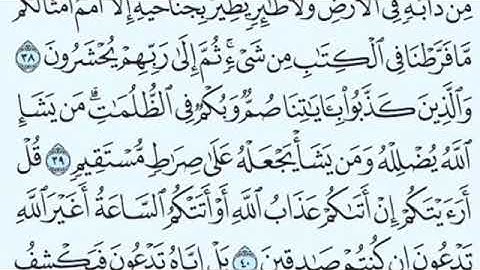 مِن دَآبَّةٍ فِى ٱلۡأَرۡضِ وَلَا طَٰٓئِرٍ يَطِيرُ بِجَنَاحَيۡهِ إِلَّآ أُمَمٌ أَمۡثَالُكُم
مَّا فَرَّطۡنَا فِى ٱلۡكِتَٰبِ مِن شَىۡءٍ ثُمَّ إِلَىٰ رَبِّهِمۡ يُحۡشَرُونَ ٣٨
وَٱلَّذِينَ كَذَّبُواْ بِـَٔايَٰتِنَا صُمٌّ وَبُكۡمٌ فِى ٱلظُّلُمَٰتِۗ مَن يَشَإِ
ٱللَّهُ يُضۡلِلۡهُ وَمَن يَشَأۡ يَجۡعَلۡهُ عَلَىٰ صِرَٰطٍ مُّسۡتَقِيمٍ ٣٩ قُلۡ
أَرَءَيۡتَكُمۡ إِنۡ أَتَىٰكُمۡ عَذَابُ ٱللَّهِ أَوۡ أَتَتۡكُمُ ٱلسَّاعَةُ أَغَيۡرَ ٱللَّهِ
تَدۡعُونَ إِن كُنتُمۡ صَٰدِقِينَ ٤٠ بَلۡ إِيَّاهُ تَدۡعُونَ فَيَكۡشِفُ